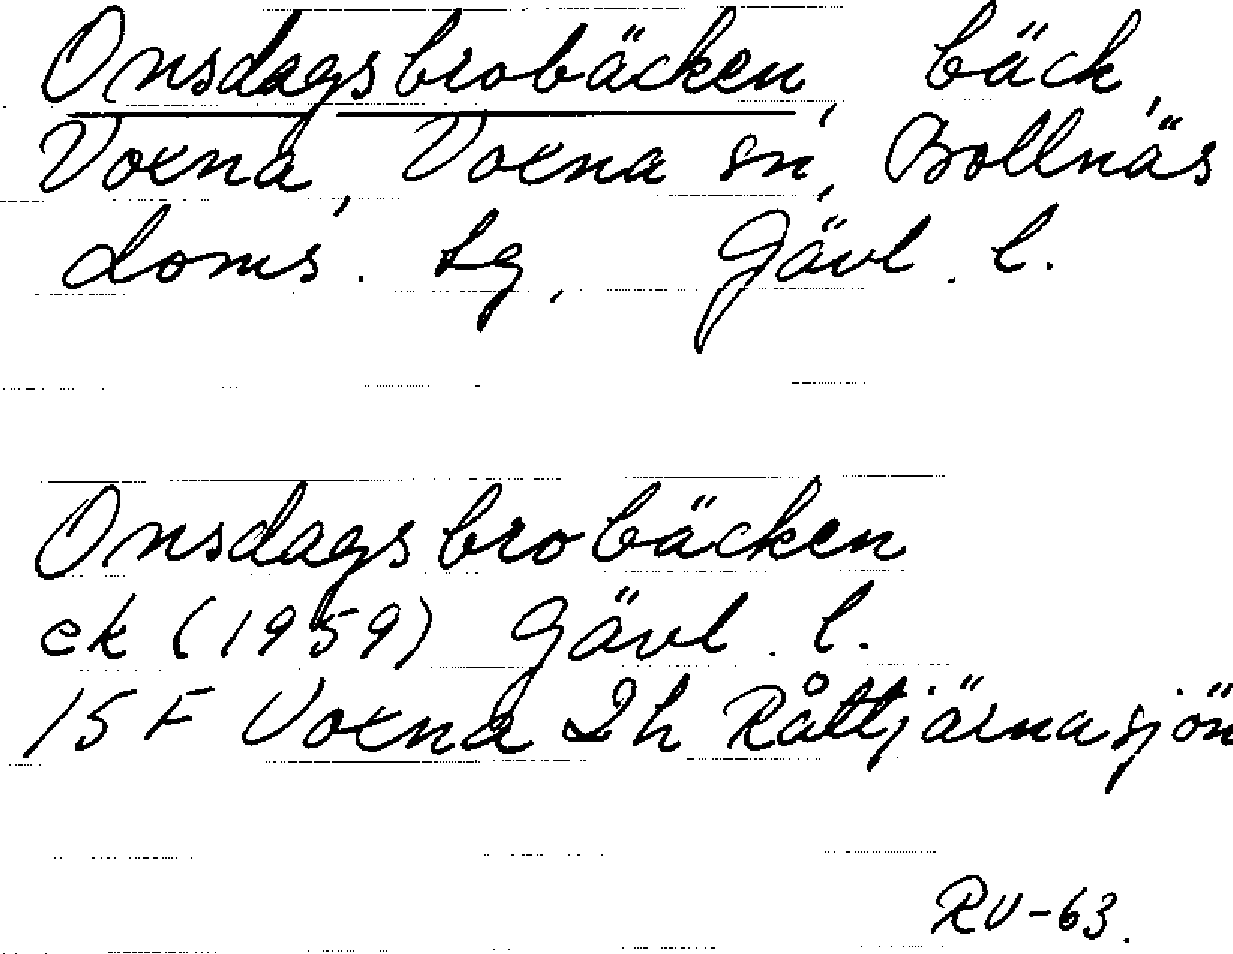 Onsdagsbrobäcken, bäck,
Voxna, Voxna sn, Bollnäs
doms. lg, Gävl. l.
Onsdagsbrobäcken
ek (1959) Gävl. l.
15 F Voxna 2h Råttjärnasjön
RV-63.